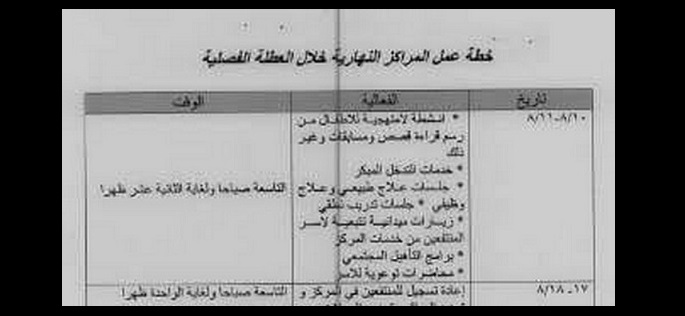 خطة عمل المراكز النهارية خلال العطلة الفصلية
تاريخ الفعالية الوقت
٨/١١-٨/١٠
* انشطة لامنهجية للاطفال من
رسم قراءة قصص ومسابقات وغير
ذلك
* خدمات التدخل المبكر
* جلسات علاج طبيعي وعلاج
وظيفي * جلسات تدريب نطقي
* زيارات ميدانية تتبعية لأسر
المنتفعين من خدمات المركز
* برامج التأهيل المجتمعي
* محاضرات توعوية للاسر
التاسعة صباحا ولغاية الثانية عشر ظهرا
٨/١٨-١٧
إعادة تسجيل للمنتفعين في المركز و
التاسعة صباحا ولغاية الواحدة ظهرا